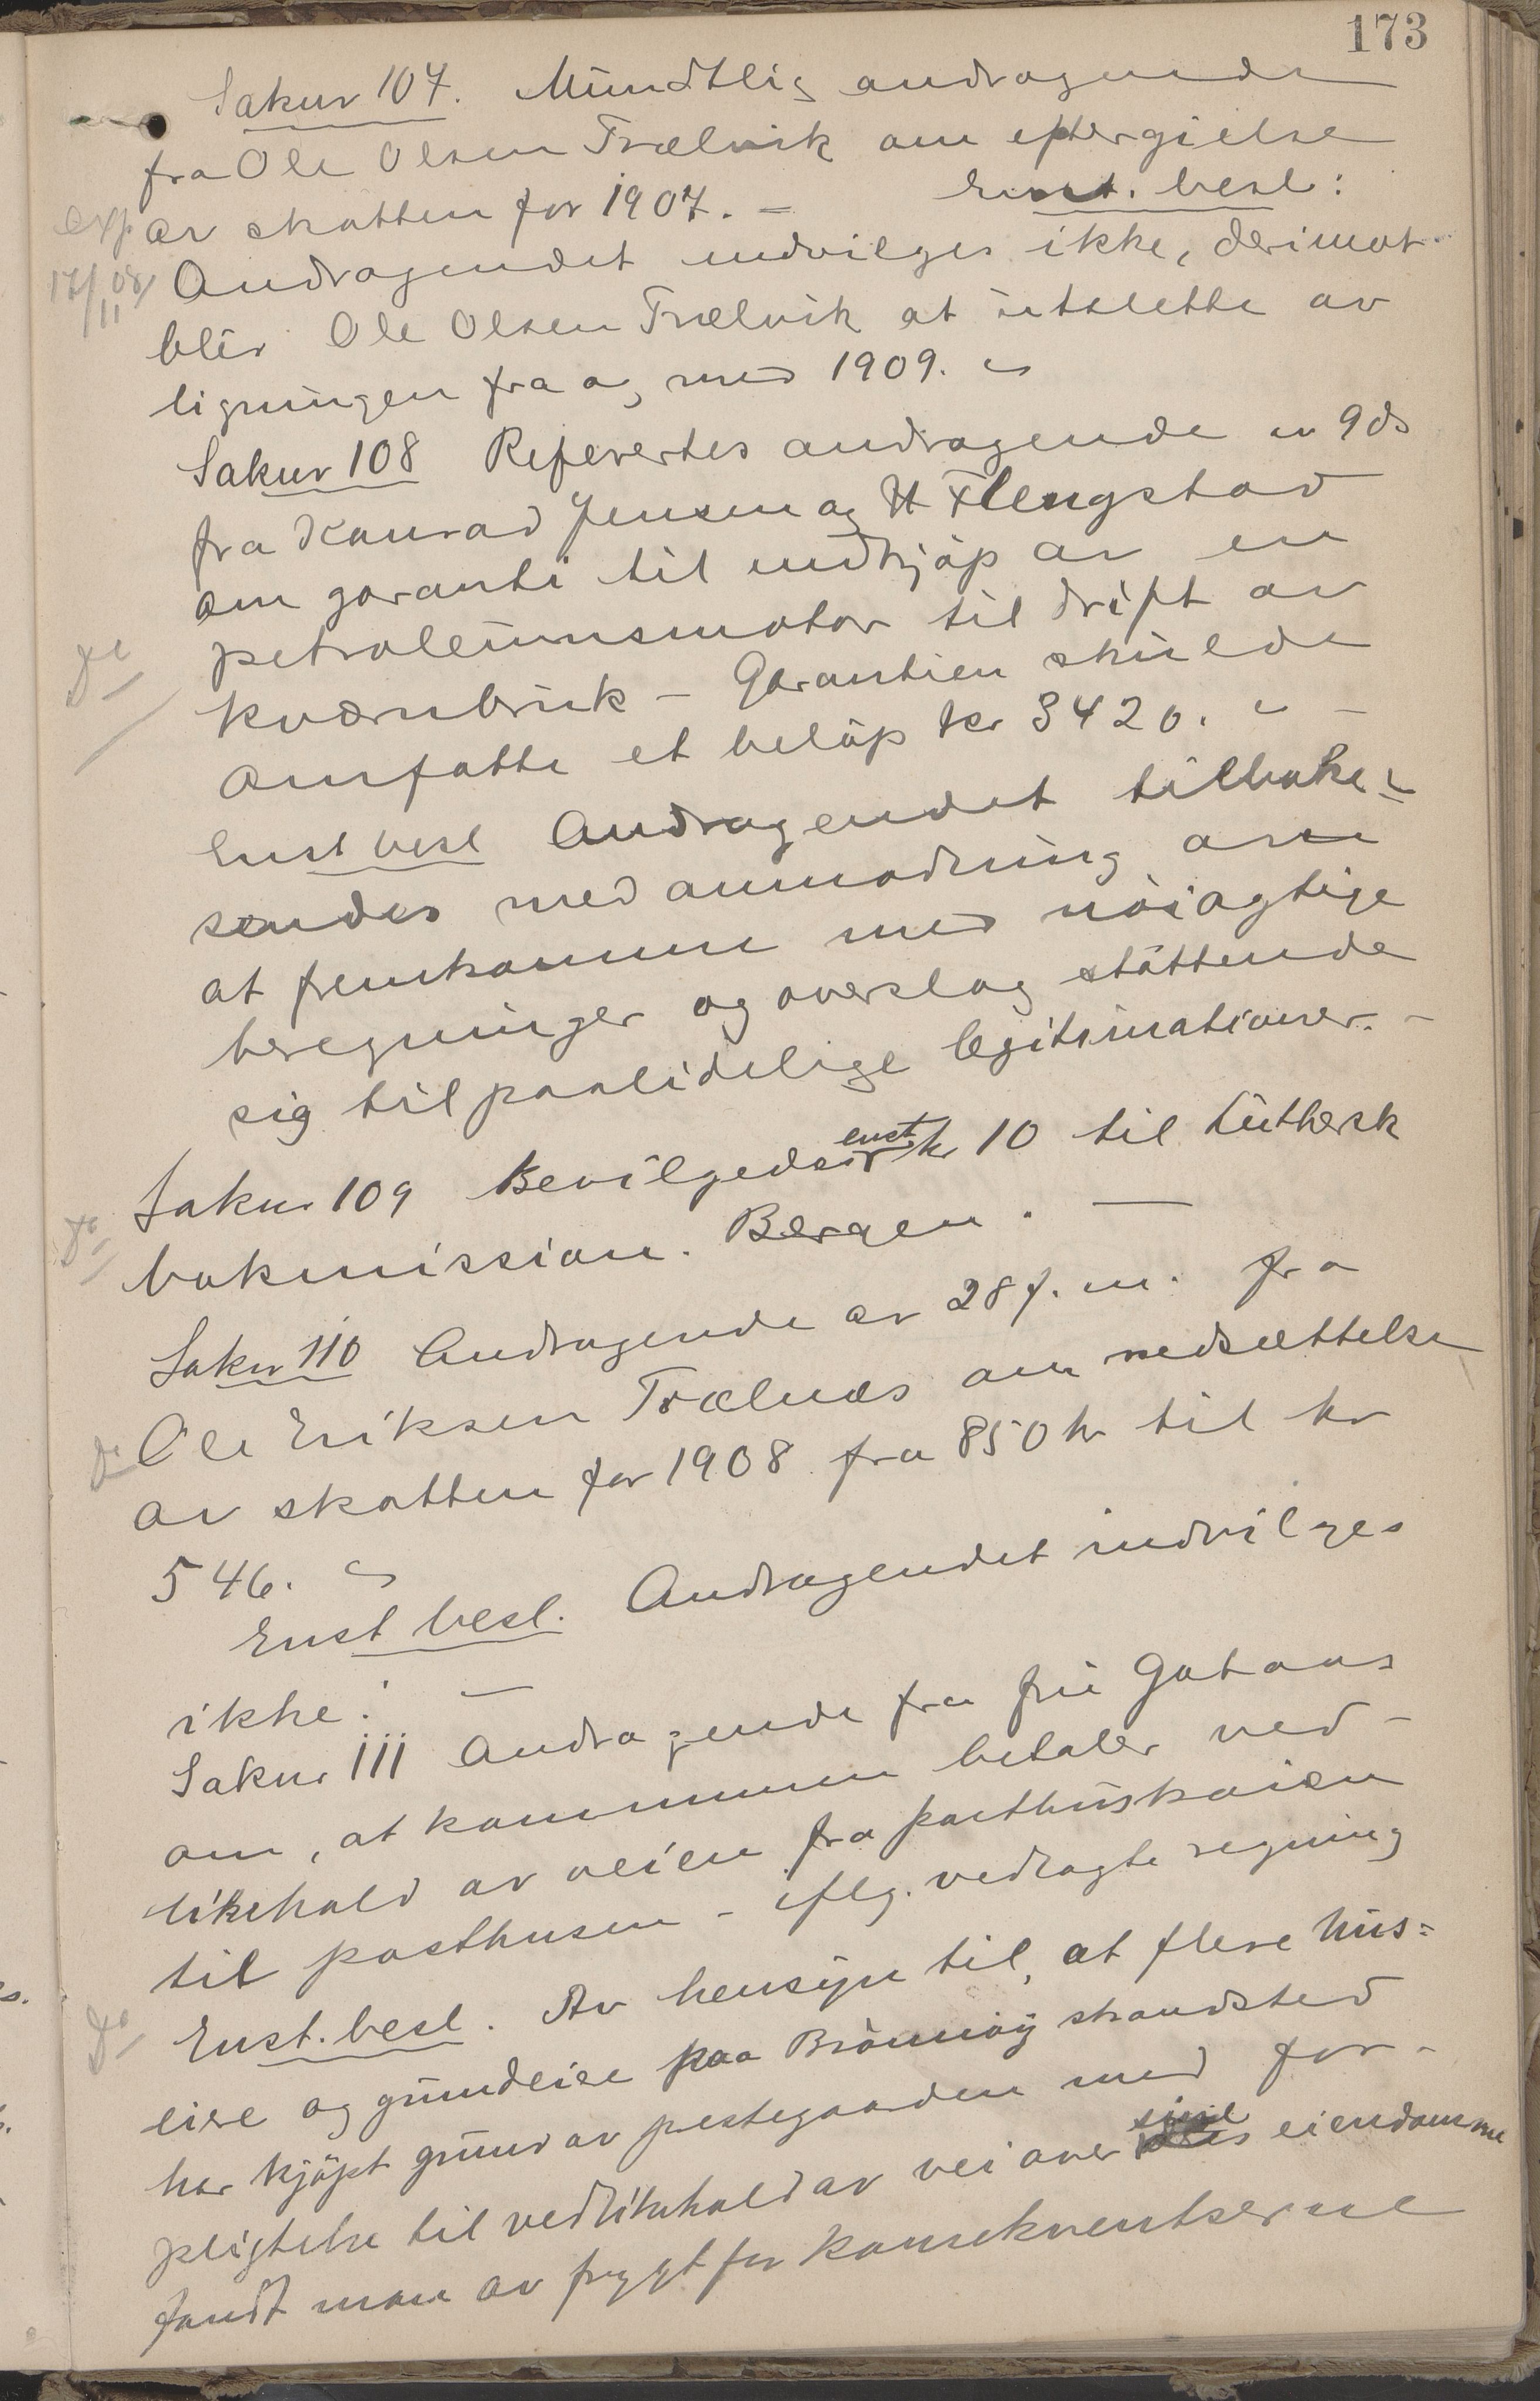 173
Saknr 107. Mundtlig andragende
fra Ole Olsen Trælvik om eftergielse
av skatten for 1907. – Enst. besl:
exp 17/11 08
Andragendet indvilges ikke, derimot
blir Ole Olsen Trælvik at utslette av
ligningen fra og med 1909. –
Saknr 108 Refereertes andragende av 9ds
fra Konrad Jensen og H Flengstad
om garanti til indkjøp av en
do
petroleumsmotor til drift av
kværnbruk – Garantien skulde
omfatte et beløp kr 3420. – –
Enst besl Andragendet tilbake=
sendes med anmodning om
at fremkomme med nøiagtige
beregninger og overslag støttende
sig til paalidelige legitimationer. –
Saknr 109 Bevilgedes enst. kr 10 til Luthersk
do
bokmission. Bergen. —
Saknr 110 Andragende av 28 f. m. fra
do
Ole Eriksen Trælnæs om nedsættelse
av skatten for 1908 fra 850 kr til kr
546. –
Enst besl. Andragendet indvilges
ikke! —
Saknr 111 Andragende fra fru Gataas
om, at kommunen betaler ved-
likehold av veien fra posthuskaien
til posthusen – iflg. vedlagte regning
do
Enst. besl. Av hensyn til, at flere hus=
eiere og grundeiere paa Brønnøy strandsted
har kjøpt grund av prestegaarden med for-
pligtelse til vedlikehold av vei over sine eiendomme
fandt man av frygt for konsekventserne